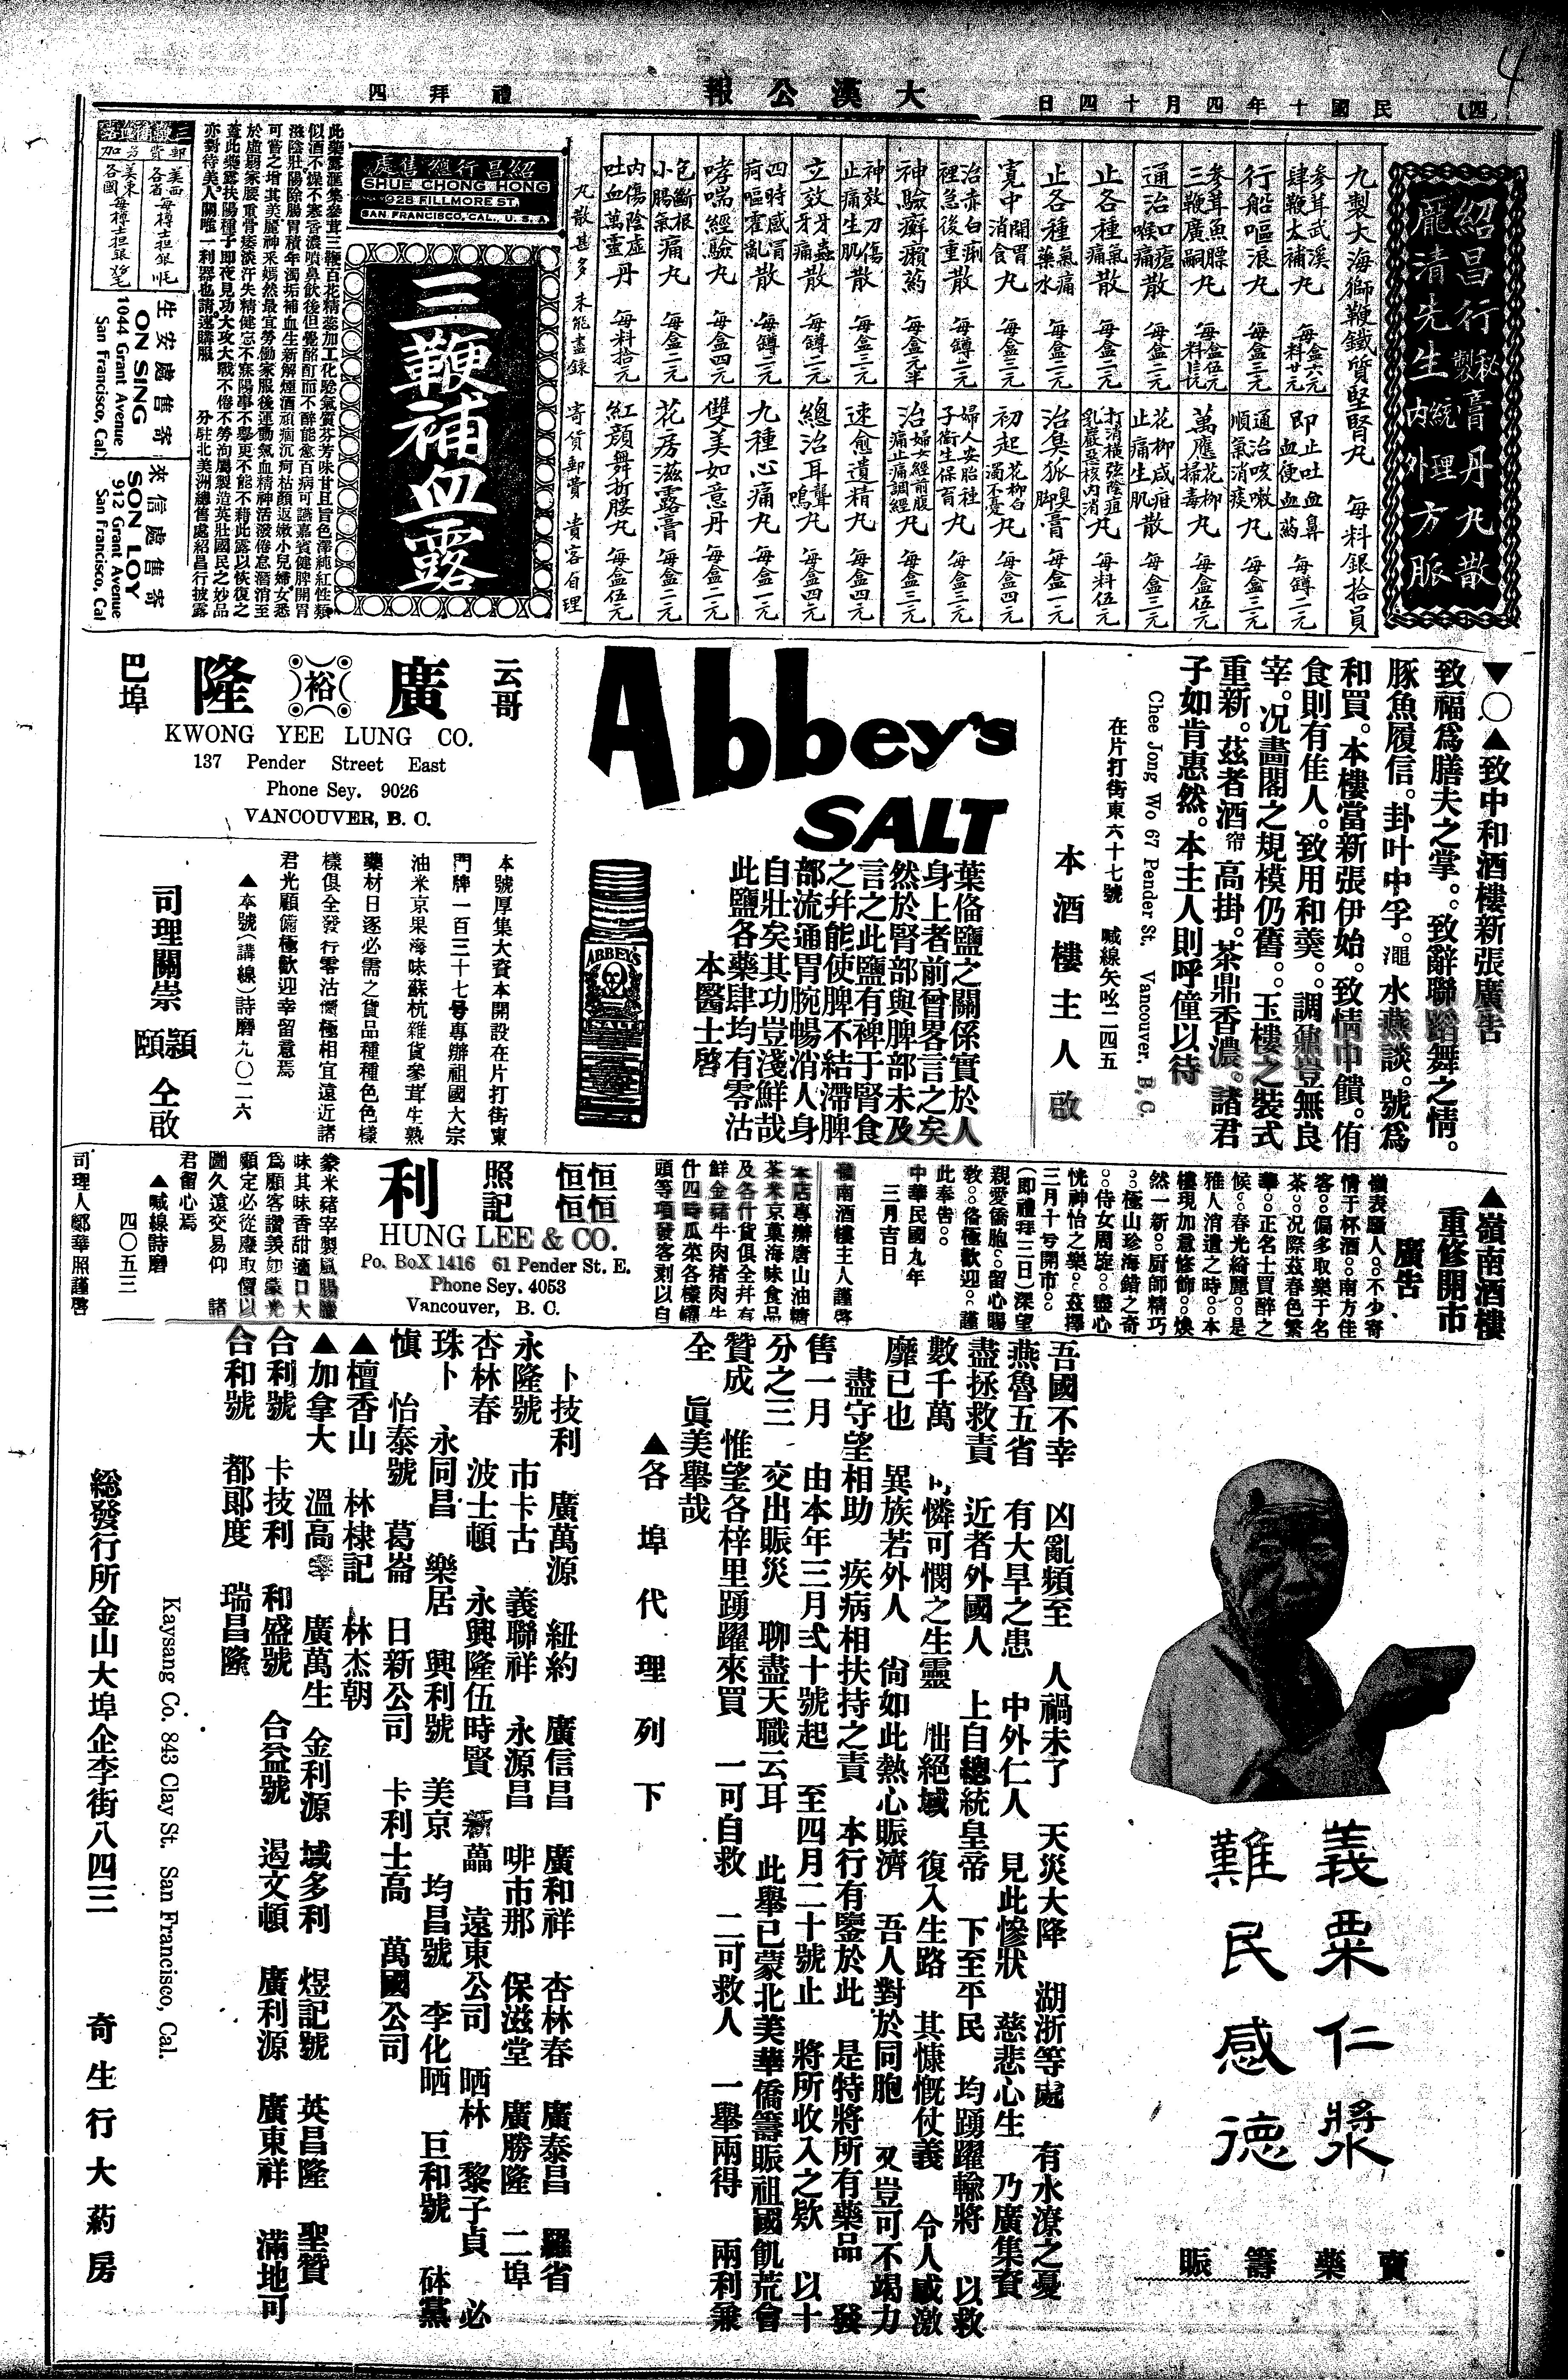 （四）
民國十年四月十四日
大漢公報
禮拜四
紹昌行秘製膏丹丸散
龐清先生統理內外方脈
九製大海獅鞭鐵質堅腎丸　每料銀拾員
參茸武溪肆鞭大補丸　每盒六元每料廿元
行船嘔浪丸　每盒三元
參茸魚膘三鞭廣嗣丸
通治口瘡喉痛散　每盒二元
止各種氣痛散　每盒二元
止各種氣痛藥水　每盒三元
寬中開胃消食丸　每盒三元
神驗癬癩葯　每盒元半
治赤白痢裡急後重丸　每罇二元
神效刀傷止痛生肌散　每盒二元
立效牙蟲牙痛散　每罇二元
四時感冒疴嘔霍亂散　每罇二元
哮喘經驗丸　每盒四元
包斷根小腸氣痛丸　每盒二元
內傷陰虛吐血萬靈丹　每料拾元
即止吐血鼻血便血葯　每罇二元
通治咳嗽順氣消痰丸　每盒三元
萬應花柳掃毒丸　每盒伍元
花柳咸疳止痛生肌散　每盒三元
打消橫弦陰疽乳巖惡核內消丸　每料伍元
治臭狐臭脚膏　每盒一元
初起花柳白濁不變丸　每盒四元
婦人安胎種子衛生保育丸　每盒三元
治婦女經前腹痛止痛調經丸　每盒三元
速愈遺精丸　每盒四元
總治耳聾耳鳴丸　每盒四元
九種心痛丸　每盒一元
雙美如意丹　每盒二元
花房滋露膏　每盒二元
紅顏舞折腰丸　每盒伍元
丸散甚多　未能盡錄　寄貨郵費　貴客自理
紹昌行總售處
SHUE CHONG HONG
928 FILLMORE ST.
SAN FRANCISCO, CAL., U. S. A.
三鞭補血露
此藥露滙集參茸三鞭百花精蕊加工化驗氣質芬芳味甘且旨色澤純紅性類
似酒不燥不寒香濃噴鼻飲後但覺酩酊而不醉能愈百病可讌嘉賓健脾開胃
滋陰壯陽除腸胃積年濁垢補血生新解煙酒頑痼沉疴枯顏返嫩小兒婦女悉
可嘗之增其美麗神釆嫣然最宜勞働家服後運動氣血精神活潑倦怠潛消至
於虛弱家腰重骨痿淡汗失精健忘不寐陽事不舉更不能不藉此露以恢復之
蓋此藥露扶陽種子即夜見功大攻大戰不倦不勞洵屬製造英壯國民之妙品
亦對待美人關唯一利器也請速購服　分駐北美洲總售處紹昌行披露
郵費另加
美西各省每樽士担銀
美東各國每樽士担銀
生安處售寄
ON SING
1044 Grant Avenue
San Francisco, Cal.
來信處售寄
SON LOY
912 Grant Avenue
San Francisco, Cal
▼〇▲致中和酒樓新張廣告
致福爲膳夫之掌。致辭聯蹈舞之情。
豚魚履信。卦叶中孚。澠水燕談。號爲
和買。本樓當新張伊始。致情中饋。侑
食則有佳人。致用和羹。調鼐豈無良
宰。况畫閣之規模仍舊。玉樓之裝式
重新。茲者酒帘高掛。茶鼎香濃。諸君
子如肯惠然。本主人則呼僮以待
Chee Jong Wo 67 Pender St. Vancouver, B. C.
在片打街東六十七號　喊線矢咇二四五
本酒樓主人啟
Abbey's
SALT
ABBEY'S
葉偹鹽之關係實於人
身上者前曾畧言之矣
然於腎部與脾部未及
言之此鹽有裨于腎食
之幷能使脾不結滯脾
部流通胃腕暢消人身
自壯矣其功豈淺鮮哉
此鹽各藥肆均有零沽
本醫士啓
云哥
廣裕隆
巴埠
KWONG YEE LUNG CO.
137 Pender Street East
Phone Sey. 9026
VANCOUVER, B. C.
本號厚集大資本開設在片打街東
門牌一百三十七号專辦祖國大宗
油米京果海味蘇杭雜貨參茸生熟
藥材日逐必需之貨品種種色色樣
樣俱全發行零沽價極相宜遠近諸
君光顧備極歡迎幸留意焉
▲本號（講線）詩磨九〇二六
司理關崇　穎頤　仝啟
▲嶺南酒樓
重修開市
廣告
嶺表願人。不少寄
情于杯酒。南方佳
客。偏多取樂于名
茶。况際茲春色繁
華。正名士買醉之
候。春光綺麗。是
雅人消遣之時。本
樓現加意修飾。煥
然一新。厨師精巧
。極山珍海錯之奇
。侍女周旋。盡心
恍神怡之樂。茲擇
三月十号開市。
（即禮拜三日）深望
親愛僑胞。留心賜
敎。俻極歡迎。謹
此奉告。
中華民國九年
三月吉日
嶺南酒樓主人謹啓
恒恒恒恒
照記
利
HUNG LEE & CO.
Po. BoX 1416 61 Pender St. E.
Phone Sey. 4053
Vancouver, B. C.
本店專辦唐山油糖
茶米京菓海味食品
及各什貨俱全幷有
鮮金豬牛肉猪肉牛
什四時瓜菜各樣罐
頭等項發客刻以自
豢米豬宰製風腸臘
味其味香甜適口大
爲顧客讚羡如蒙光
顧定必從廉取價以
圖久遠交易仰　諸
君留心焉
▲喊線詩磨
四〇五三
司理人鄭華照謹啓
義粟仁漿
難民感德
賣藥籌賑
吾國不幸　凶亂頻至　人禍未了　天災大降　湖浙等處　有水潦之憂
燕魯五省　有大旱之患　中外仁人　見此慘狀　慈悲心生　乃廣集資
盡拯救責　近者外國人　上自總統皇帝　下至平民　均踴躍輸將　以救
數千萬　可憐可憫之生靈　出絕域　復入生路　其慷慨仗義　令人感激
靡已也　異族若外人　尙如此熱心賑濟　吾人對於同胞　又豈可不竭力
盡守望相助　疾病相扶持之責　本行有鑒於此　是特將所有藥品　發
售一月　由本年三月弍十號起　至四月二十號止　將所收入之欵　以十
分之三　交出賑災　聊盡天職云耳　此舉已蒙北美華僑籌賑祖國飢荒會
贊成　惟望各梓里踴躍來買　一可自救　二可救人　一舉兩得　兩利兼
全　眞美舉哉
▲各埠代理列下
卜技利　廣萬源　紐約　廣信昌　廣和祥　杏林春　廣泰昌　羅省
永隆號　市卡古　義聯祥　永源昌　啡市那　保滋堂　廣勝隆　二埠
杏林春　波士頓　永興隆伍時賢　新藟　遠東公司　晒林　黎子貞　必
珠卜　永同昌　樂居　興利號　美京　均昌號　李化晒　巨和號　砵黨
慎　怡泰號　葛崙　日新公司　卡利士高　萬國公司
▲檀香山　林棣記　林杰朝
▲加拿大　溫高華　廣萬生　金利源　域多利　煜記號　英昌隆　聖贊
合利號　卡技利　和盛號　合益號　遏文頓　廣利源　廣東祥　滿地可
合和號　都郎度　瑞昌隆
Kaysang Co. 843 Clay St. San Francisco, Cal.
総發行所金山大埠企李街八四三　奇生行大葯房